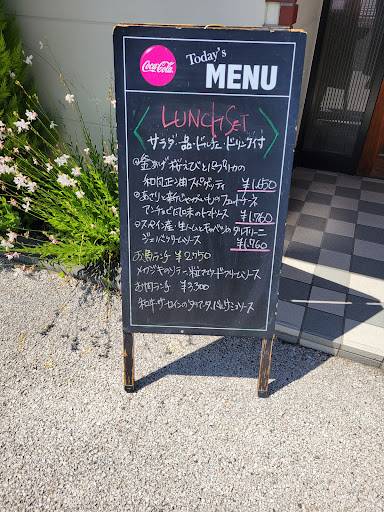 Coca-Cola
Today's
MENU
LUNCH SET
サラダ・一品・ドルチェ・ドリンク付
桜えびとパプリカの
和風正油スパゲッティ ¥1,650
あさりと新じゃがいものフェットチーネ
アンチョビ風味のトマトソース ¥1,760
スペイン産 生ハムとキャベツのタリオリーニ
ジェノバクリームソース ¥1,760
お魚ランチ ¥2,750
メカジキのソテー 粒マスタードクリームソース
お肉ランチ ¥3,300
和牛サーロインのタリアータ ソース